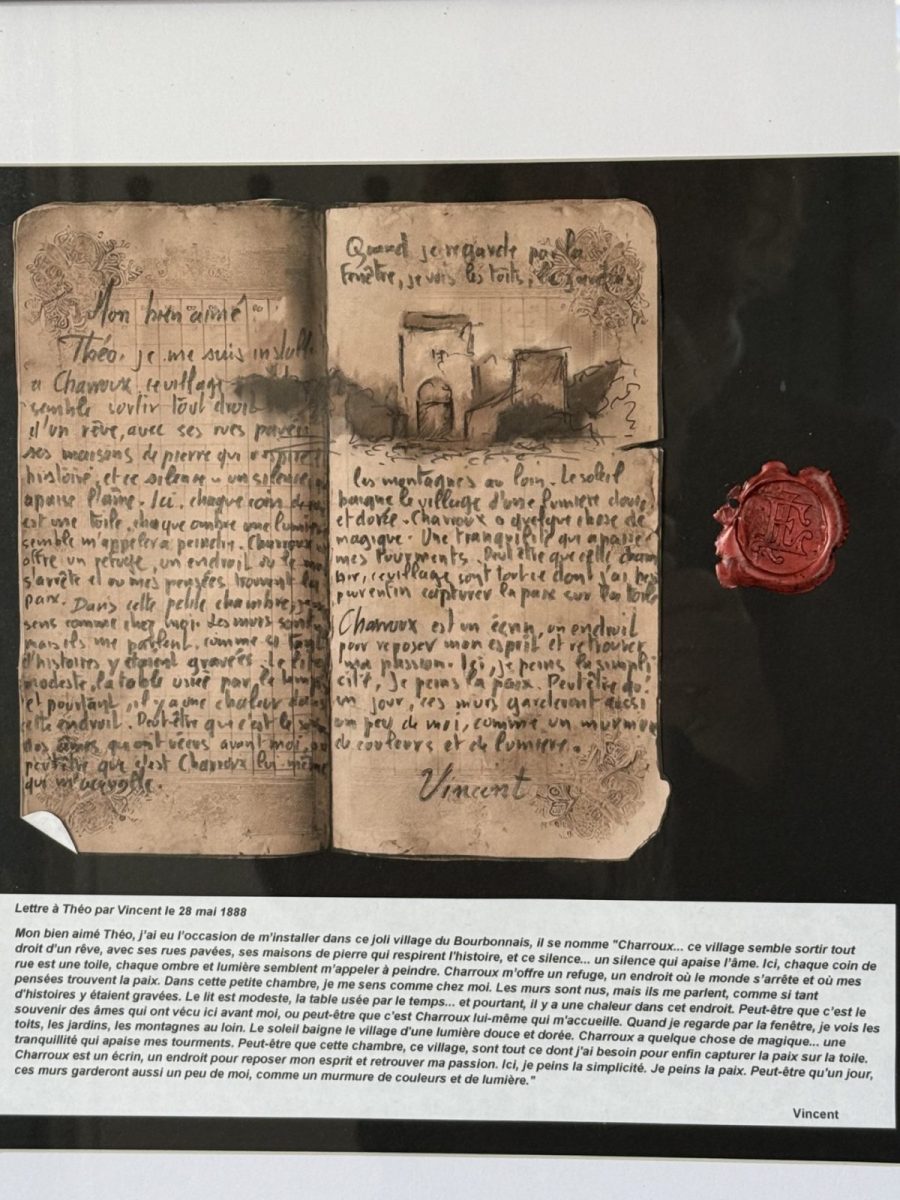 Mon bien aimé
Théo, je me suis install
a Charroux, ce village
semble sortir tout droit
d'un rêve, avec ses rues pavées
ses maisons de pierre qui respire
histoire, et ce silence un silence
apaise l'âme. Ici, chaque coin de
est une toile, chaque ombre une lumière
semble m'appeler a peindre. Charroux m
offre un refuge, un endroit ou le
s'arrête et ou mes pensées trouvent la
paix. Dans cette petite chambre, je
sens comme chez moi. Les murs sont
mais ils me parlent, comme si tant
d'histoires y étaient gravées. Le lit
modeste, la table usée par le temps
et pourtant, il y a une chaleur dans
cette endroit. Peut-être que c'est le
des âmes qui ont vécus avant moi, ou
peut être que c'est Charroux lui-même
qui m'accueille.
Quand je regarde par la
fenêtre, je vois les toits, les jardins
les montagnes au loin. Le soleil
baigne le village d'une lumière douce
et dorée. Charroux a quelque chose de
magique. Une tranquilité qui apaise
mes tourments. Peut être que cette cham
bre, ce village, sont tout ce dont j'ai
pur enfin capturer la paix sur la toile
Charroux est un écrin, un endroit
pour reposer mon esprit et retrouver
ma passion. Ici, je peins la simpli
cité, Je peins la paix. Peut être qu'
un jour, ces murs garderont aussi
un peu de moi, comme un murmure
de couleurs et de lumière.
Vincent
Lettre à Théo par Vincent le 28 mai 1888
Mon bien aimé Théo, j'ai eu l'occasion de m'installer dans ce joli village du Bourbonnais, il se nomme "Charroux... ce village semble sortir tout
droit d'un rêve, avec ses rues pavées, ses maisons de pierre qui respirent l'histoire, et ce silence... un silence qui apaise l'âme. Ici, chaque coin de
rue est une toile, chaque ombre et lumière semblent m'appeler à peindre. Charroux m'offre un refuge, un endroit où le monde s'arrête et où mes
pensées trouvent la paix. Dans cette petite chambre, je me sens comme chez moi. Les murs sont nus, mais ils me parlent, comme si tant
d'histoires y étaient gravées. Le lit est modeste, la table usée par le temps... et pourtant, il y a une chaleur dans cet endroit. Peut-être que c'est le
souvenir des âmes qui ont vécu ici avant moi, ou peut-être que c'est Charroux lui-même qui m'accueille. Quand je regarde par la fenêtre, je vois les
toits, les jardins, les montagnes au loin. Le soleil baigne le village d'une lumière douce et dorée. Charroux a quelque chose de magique... une
tranquillité qui apaise mes tourments. Peut-être que cette chambre, ce village, sont tout ce dont j'ai besoin pour enfin capturer la paix sur la toile.
Charroux est un écrin, un endroit pour reposer mon esprit et retrouver ma passion. Ici, je peins la simplicité. Je peins la paix. Peut-être qu'un jour,
ces murs garderont aussi un peu de moi, comme un murmure de couleurs et de lumière."
Vincent